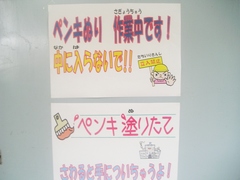 ペンキぬり 作業中です！
さぎょうちゅう
中に入らないで!!
なか はい
ペンキ 塗りたて
ぬ
さわると手についちゃうよ！